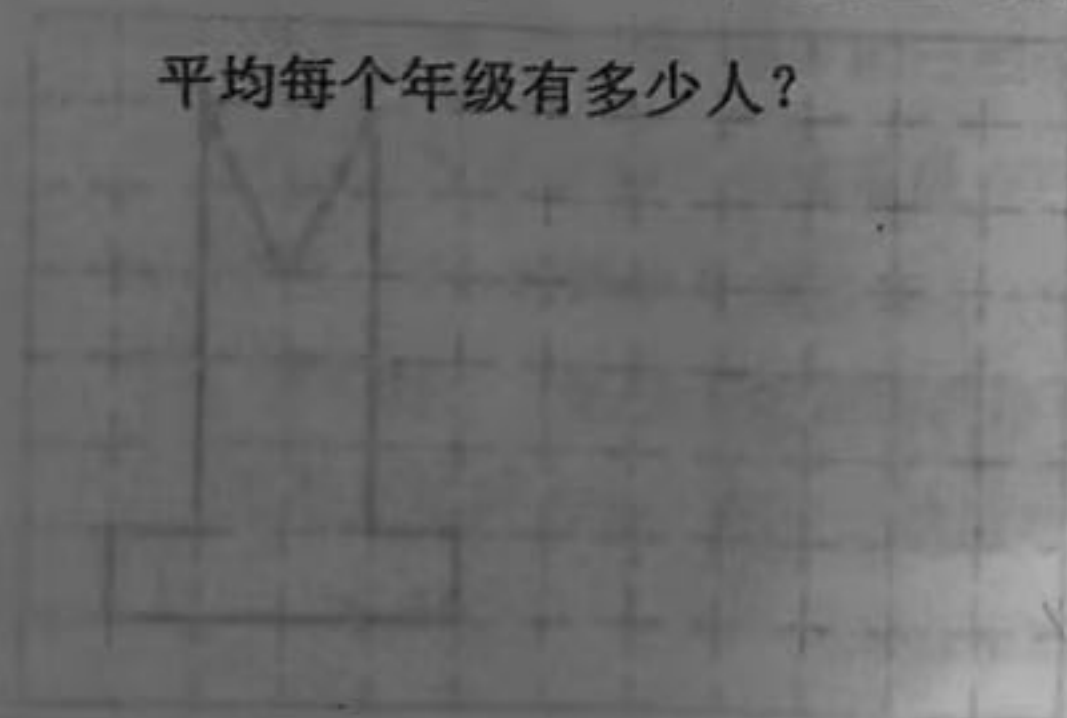 平均每个年级有多少人？